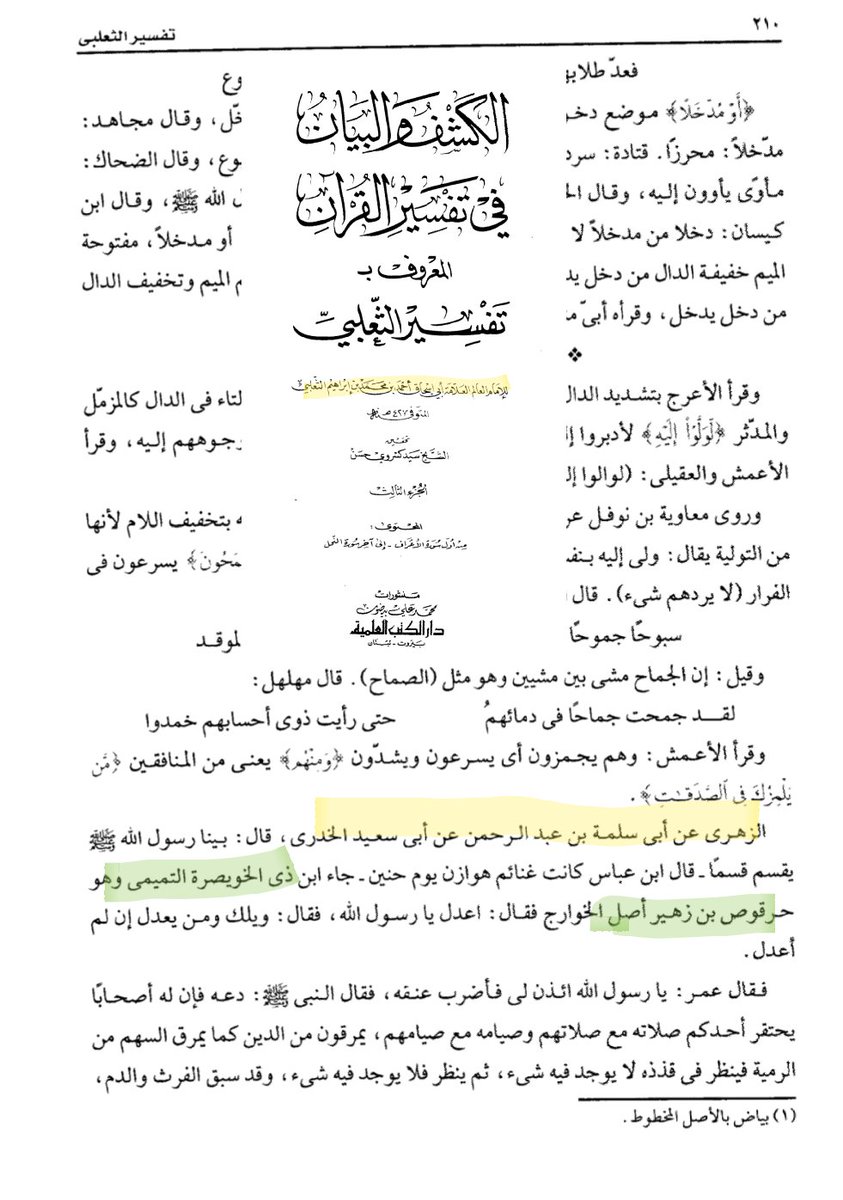 ٢١٠
تفسير الثعلبى
فعدّ طلابه
وع
﴿أَوْ مُدَّخَلًا﴾ موضع دخو
فّل، وقال مجاهد:
مدّخلاً: محرزًا. قتادة: سرد
وع، وقال الضحاك:
مأوًى يأوون إليه، وقال الح
ل الله ﷺ، وقال ابن
كيسان: دخلا من مدخلاً لا
أو مدخلاً، مفتوحة
الميم خفيفة الدال من دخل يد
م الميم وتخفيف الدال
من دخل يدخل، وقرأه أبىّ مـ
الكشف والبيان
في تفسير القرآن
المعروف بـ
تفسير الثعلبي
للإمام العالم العلامة أبي إسحاق أحمد بن محمد بن إبراهيم الثعلبي
المتوفى ٤٢٧ هـ
تحقيق
الشيخ سيد كسروي حسن
الجزء الثالث
المحتوى:
من أول سورة الأعراف - إلى آخر سورة النحل
منشورات
محمد علي بيضون
دار الكتب العلمية
بيروت - لبنان
وقرأ الأعرج بتشديد الدال
لتاء فى الدال كالمزمّل
والمدّثر ﴿لَّوَلَّوْا۟ إِلَيْهِ﴾ لأدبروا إل
رجوههم إليه، وقرأ
الأعمش والعقيلى: (لوالوا إل
وروى معاوية بن نوفل عن
ه بتخفيف اللام لأنها
من التولية يقال: ولى إليه بنفـ
مَحُونَ﴾ يسرعون فى
الفرار (لا يردهم شىء). قال
سبوحًا جموحًا
لموقد
وقيل: إن الجماح مشى بين مشيين وهو مثل (الصماح). قال مهلهل:
لقـد جمحت جماحًا فى دمائهمُ حتى رأيت ذوى أحسابهم خمدوا
وقرأ الأعمش: وهم يجمزون أى يسرعون ويشدّون ﴿وَمِنْهُم﴾ يعنى من المنافقين ﴿مَّن
يَلْمِزُكَ فِى ٱلصَّدَقَـٰتِ﴾.
الزهرى عن أبى سلمة بن عبد الرحمن عن أبى سعيد الخدرى، قال: بينا رسول الله ﷺ
يقسم قسمًا ـ قال ابن عباس كانت غنائم هوازن يوم حنين ـ جاء ابن ذى الخويصرة التميمى وهو
حرقوص بن زهير أصل الخوارج فقال: اعدل يا رسول الله، فقال: ويلك ومن يعدل إن لم
أعدل.
فقال عمر: يا رسول الله ائذن لى فأضرب عنقه، فقال النبى ﷺ: دعه فإن له أصحابًا
يحتقر أحدكم صلاته مع صلاتهم وصيامه مع صيامهم، يمرقون من الدين كما يمرق السهم من
الرمية فينظر فى قذذه لا يوجد فيه شىء، ثم ينظر فلا يوجد فيه شىء، وقد سبق الفرث والدم،
(١) بياض بالأصل المخطوط.